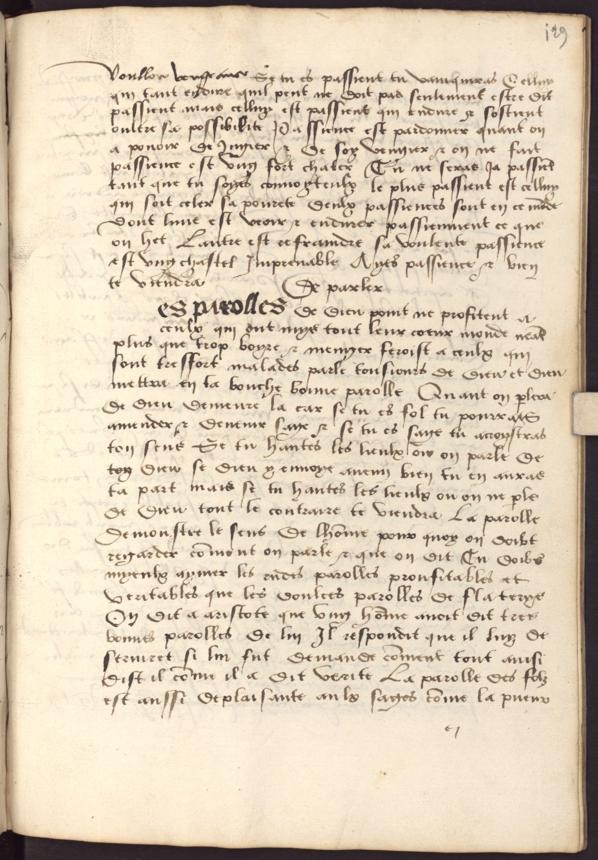 129
voulloir vengeance Se tu es passient tu vainquiras Celluy
qui tant endure quil peut ne doit pas seulement estre dit
passient mais celluy est passient qui endure & soustient
oultre sa possibilite Passience est pardonner quant on
a pouoir de & de soy vengier & on ne fait
passience est vng fort chastel Tu ne seras Ja passient
tant que tu soyes conuoyteulx le plus passient est celluy
qui scit celer sa pourete Deulx passiences sont en ce mōde
dont lune est veoir & endurer passienment ce que
on het Lautre est reffraindre sa voulente passience
est vng chastel Imprenable Ayes passience & bien
te viendra De parler
es parolles de dieu point ne profitent a
ceulx qui ont mys tout leur coeur monde
plus que trop boyre & menger feroist a ceulx qui
sont tresfort malades parle tousiours de dieu et dieu
mettra en ta bouche bonne parolle Quant on plera
de dieu demeure la car se tu es fol tu pourras
amender & deuenir saige & se tu es saige tu acroystras
ton sens Se tu hantes les lieulx ou on parle de
ton dieu se dieu y enuoye aucun bien tu en auras
ta part mais se tu hantes les lieulx ou on ne ple
de dieu tout le contraire te viendra La parolle
demonstre le sens de lhōme pour quoy on doibt
regarder cōment on parle & que on dit Tu doibs
myeulx aymer les rudes parolles proufitables et
veritables que les doulces parolles de flaterye
On dit a aristote que vng hōme auoit dit tres
bonnes parolles de lui Il respondit que il luy de
seruiret si lui fut demande cōment tout ainsi
dist il cōme il a dit verite La parolle des folz
est aussi deplaisante aulx saiges cōme la pueur